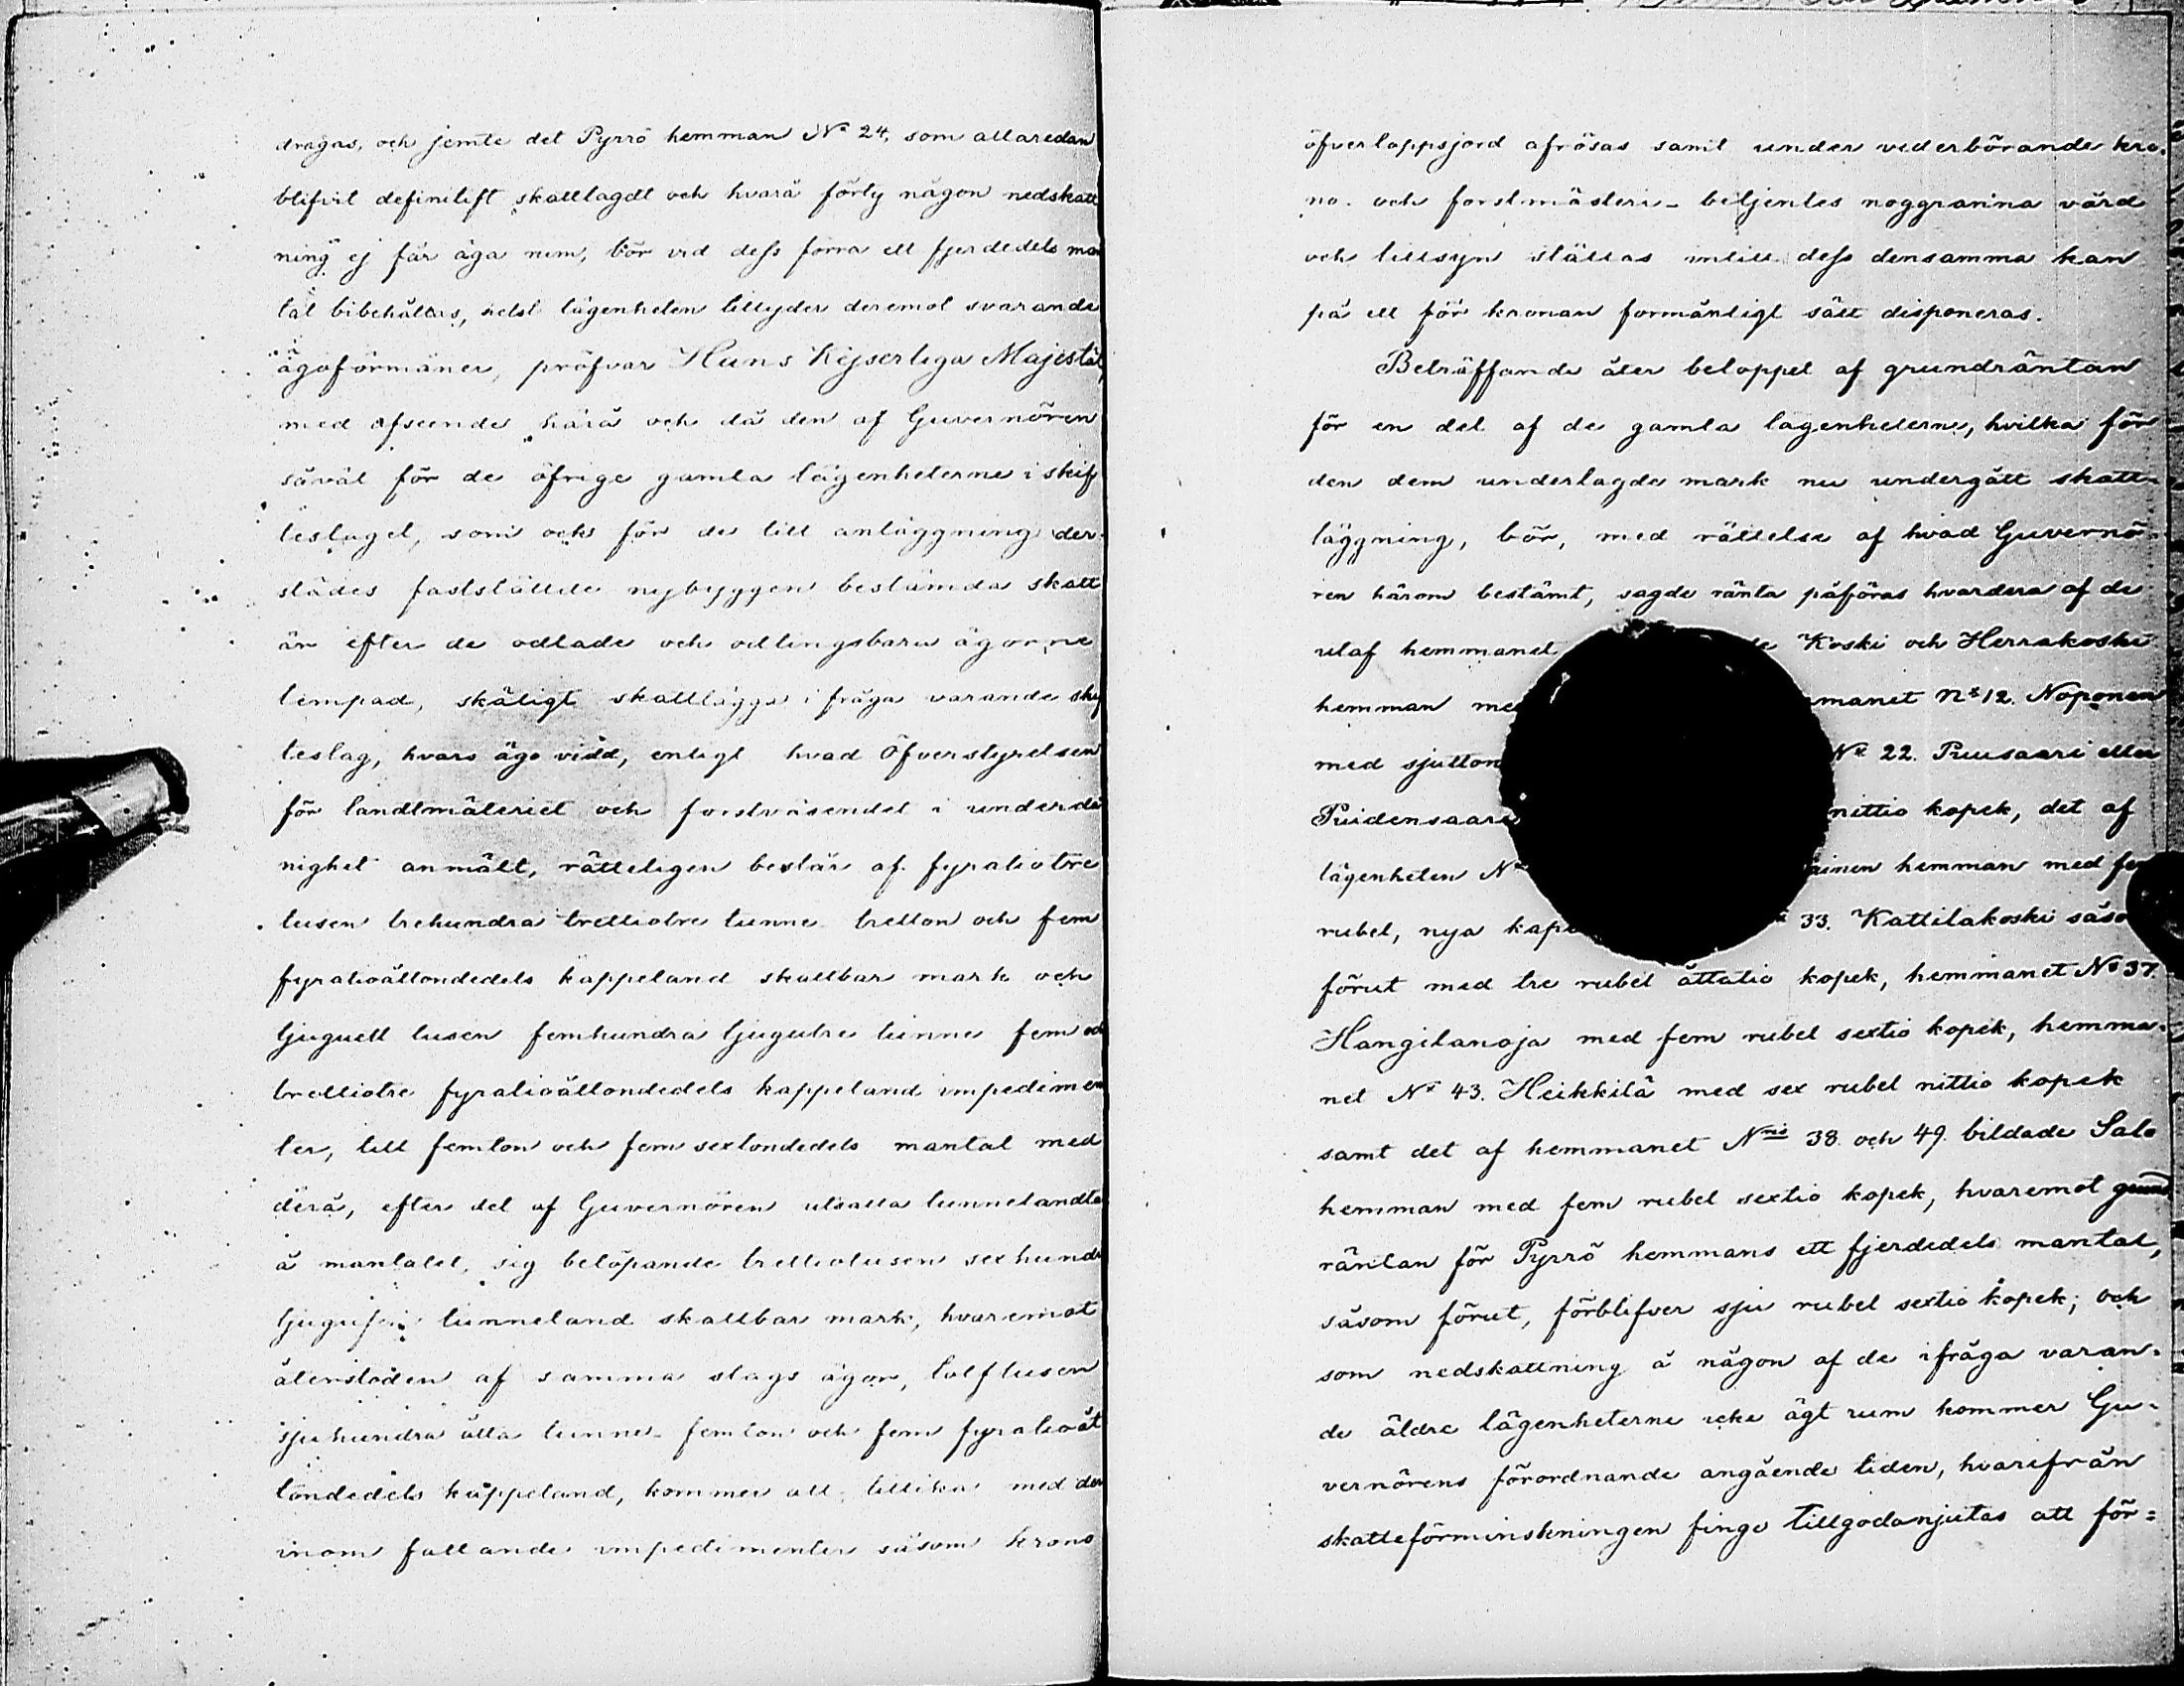 dragas, och jemte det Pyrrö hemman No 24, som allaredan
blifvit definitift skattlagdt och hvarå förty någon nedskatt
ning ej får äga rum, bör vid dess förra ett fjerdedels man
tal bibehållas, helst lägenheten tillyder deremot svarande
ägoförmåner, pröfvar Hans Kejserliga Majestät,
med afseende härå och då den af Guvernören
såväl för de öfrige gamla lägenheterne i skif
teslaget, som ock för de till anläggning der-
städes fastställde nybyggen bestämda skatt
är efter de odlade och odlingsbara ägorne
lempad, skäligt skattlägga i fråga varande skif
teslag, hvars ägovidd, enligt hvad Öfverstyrelsen
för landtmäteriet och forstväsendet i underdå
nighet anmält, rätteligen består af fyratiotre
tusen trehundra trettiotre tunne tretton och fem
fyratioåttondedels kappeland skattbar mark och
tjuguett tusen femhundra tjugutre tunne fem och
trettiotre fyratioåttondedels kappeland impedimen
ter, till femton och fem sextondedels mantal med
derå, efter det af Guvernören utsatta tunnelandtal
å mantalet, sig belöpande trettiotusen sexhundra
tunneland skattbar mark, hvaremot
återstoden af samma slags ägor, tolftusen
sjuhundra åtta tunne femton och fem fyratioåt
tondedels kappeland, kommer att tillika med der
inom fallande impedimenter såsom krono
öfverloppsjord afrösas samt under vederbörande kro-
no- och forstmästeri-betjentes noggranna vård
och tillsyn ställas intill dess densamma kan
på ett för kronan formånligt sätt disponeras.
Beträffande åter beloppet af grundräntan
för en del af de gamla lägenheterne, hvilka för
den dem underlagda mark nu undergått skatt-
läggning, bör, med rättelse af hvad Guvernö-
ren härom bestämt, sagde ränta påföras hvardera af de
utaf hemmanet Koski och Herrakoski
hemman manet No 12. Noponen
med sjutton No 22. Puusaari eller
Puidensaari nittio kopek, det af
lägenheten No ainen hemman med
rubel, nya 33. Kattilakoski såso
förut med tre rubel åttatio kopek, hemmanet No 37.
Hangilanoja med fem rubel sextio kopek, hemma-
net No 43. Heikkilä med sex rubel nittio kopek
samt det af hemmanet Nris 38. och 49. bildade Salo
hemman med fem rubel sextio kopek, hvaremot grund
räntan för Pyrrö hemmans ett fjerdedels mantal,
såsom förut, förblifver sju rubel sextio kopek; och
som nedskattning å någon af de ifråga varan-
de äldre lägenheterne icke ägt rum kommer Gu-
vernörens förordnande angående tiden, hvarifrån
skatteförminskningen finge tillgodonjutas att för=